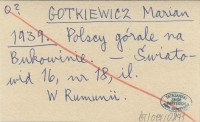 GOTKIEWICZ Marian
1939. Polscy górale na
Bukowinie. — Świato-
wid 16, nr 18, il.
W Rumunii.